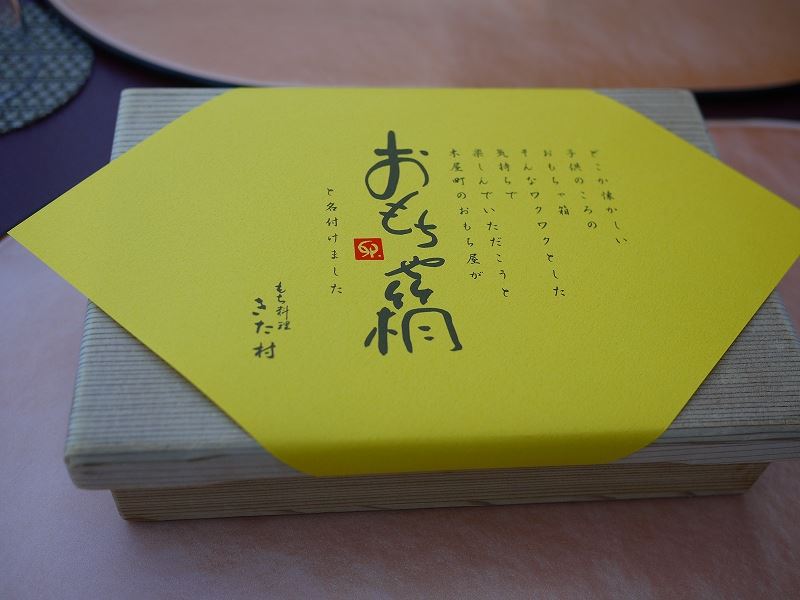 どこか懐かしい
子供のころの
おもちゃ箱
そんなワクワクとした
気持ちで
楽しんでいただこうと
木屋町のおもち屋が
おもちや箱
と名付けました
もち料理
きた村